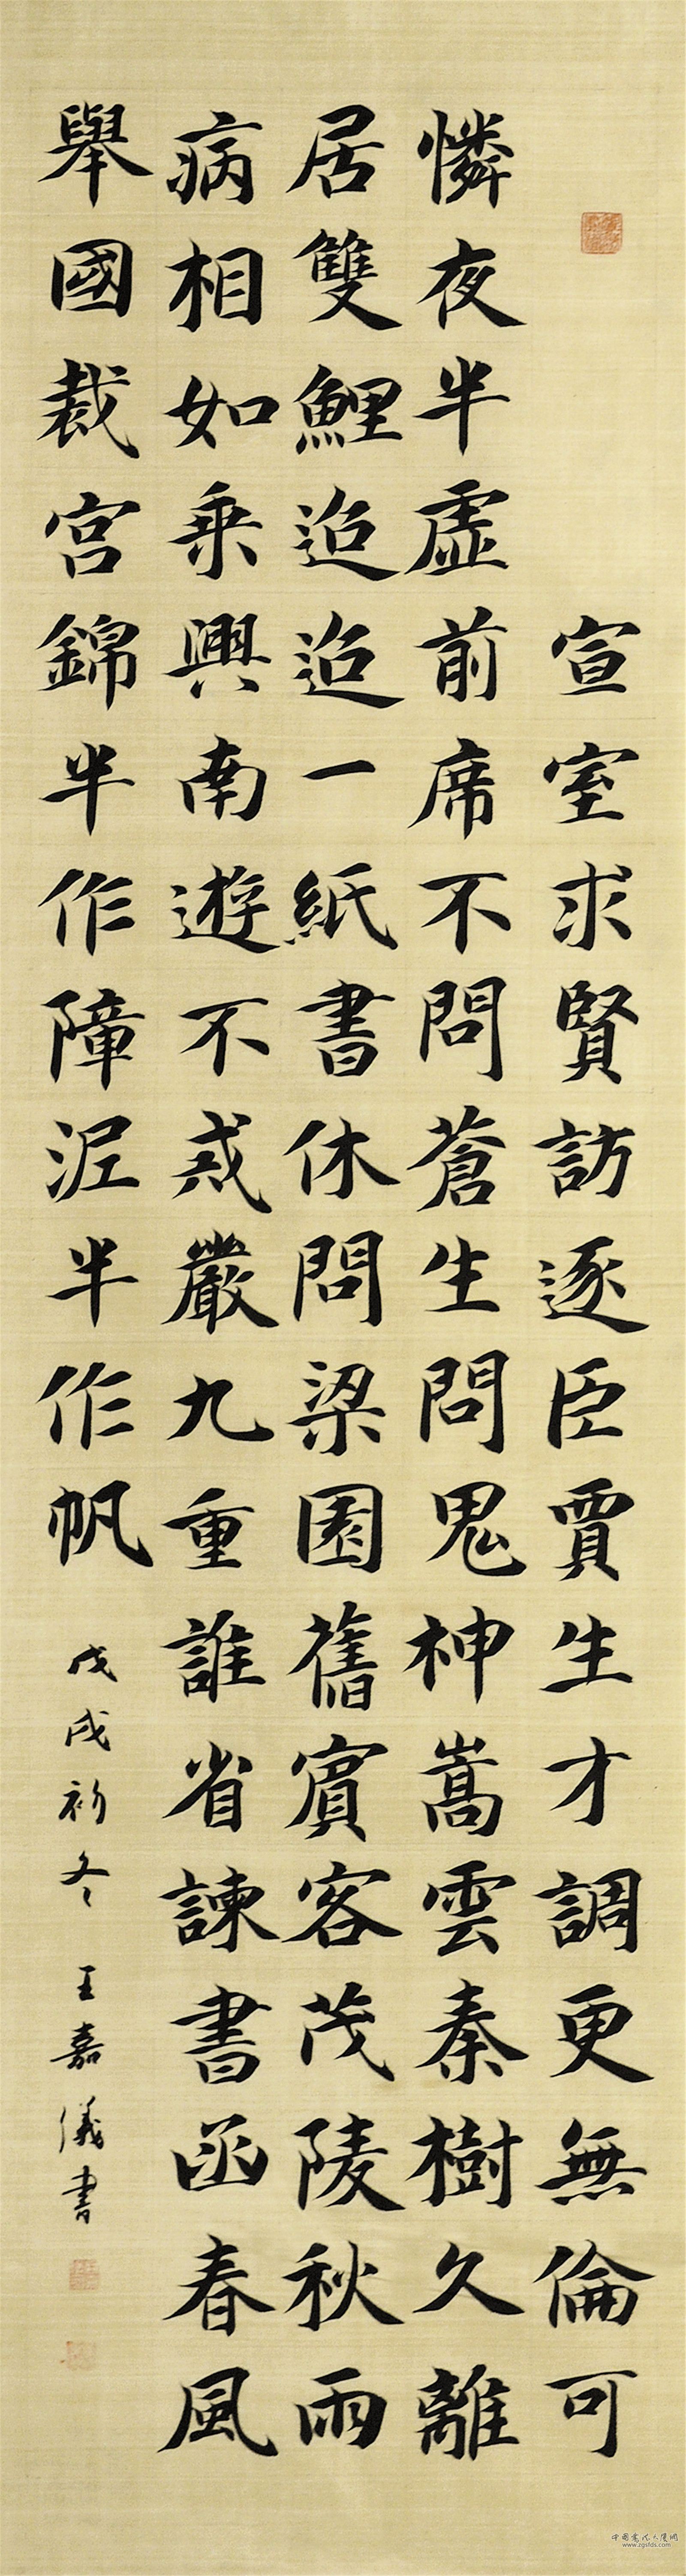 宣室求賢訪逐臣賈生才調更無倫可
憐夜半虛前席不問蒼生問鬼神嵩雲秦樹久離
居雙鯉迢迢一紙書休問梁園舊賓客茂陵秋雨
病相如乘興南遊不戒嚴九重誰省諫書函春風
舉國裁宮錦半作障泥半作帆
戊戌初冬 王嘉儀書
www.zgsfds.com